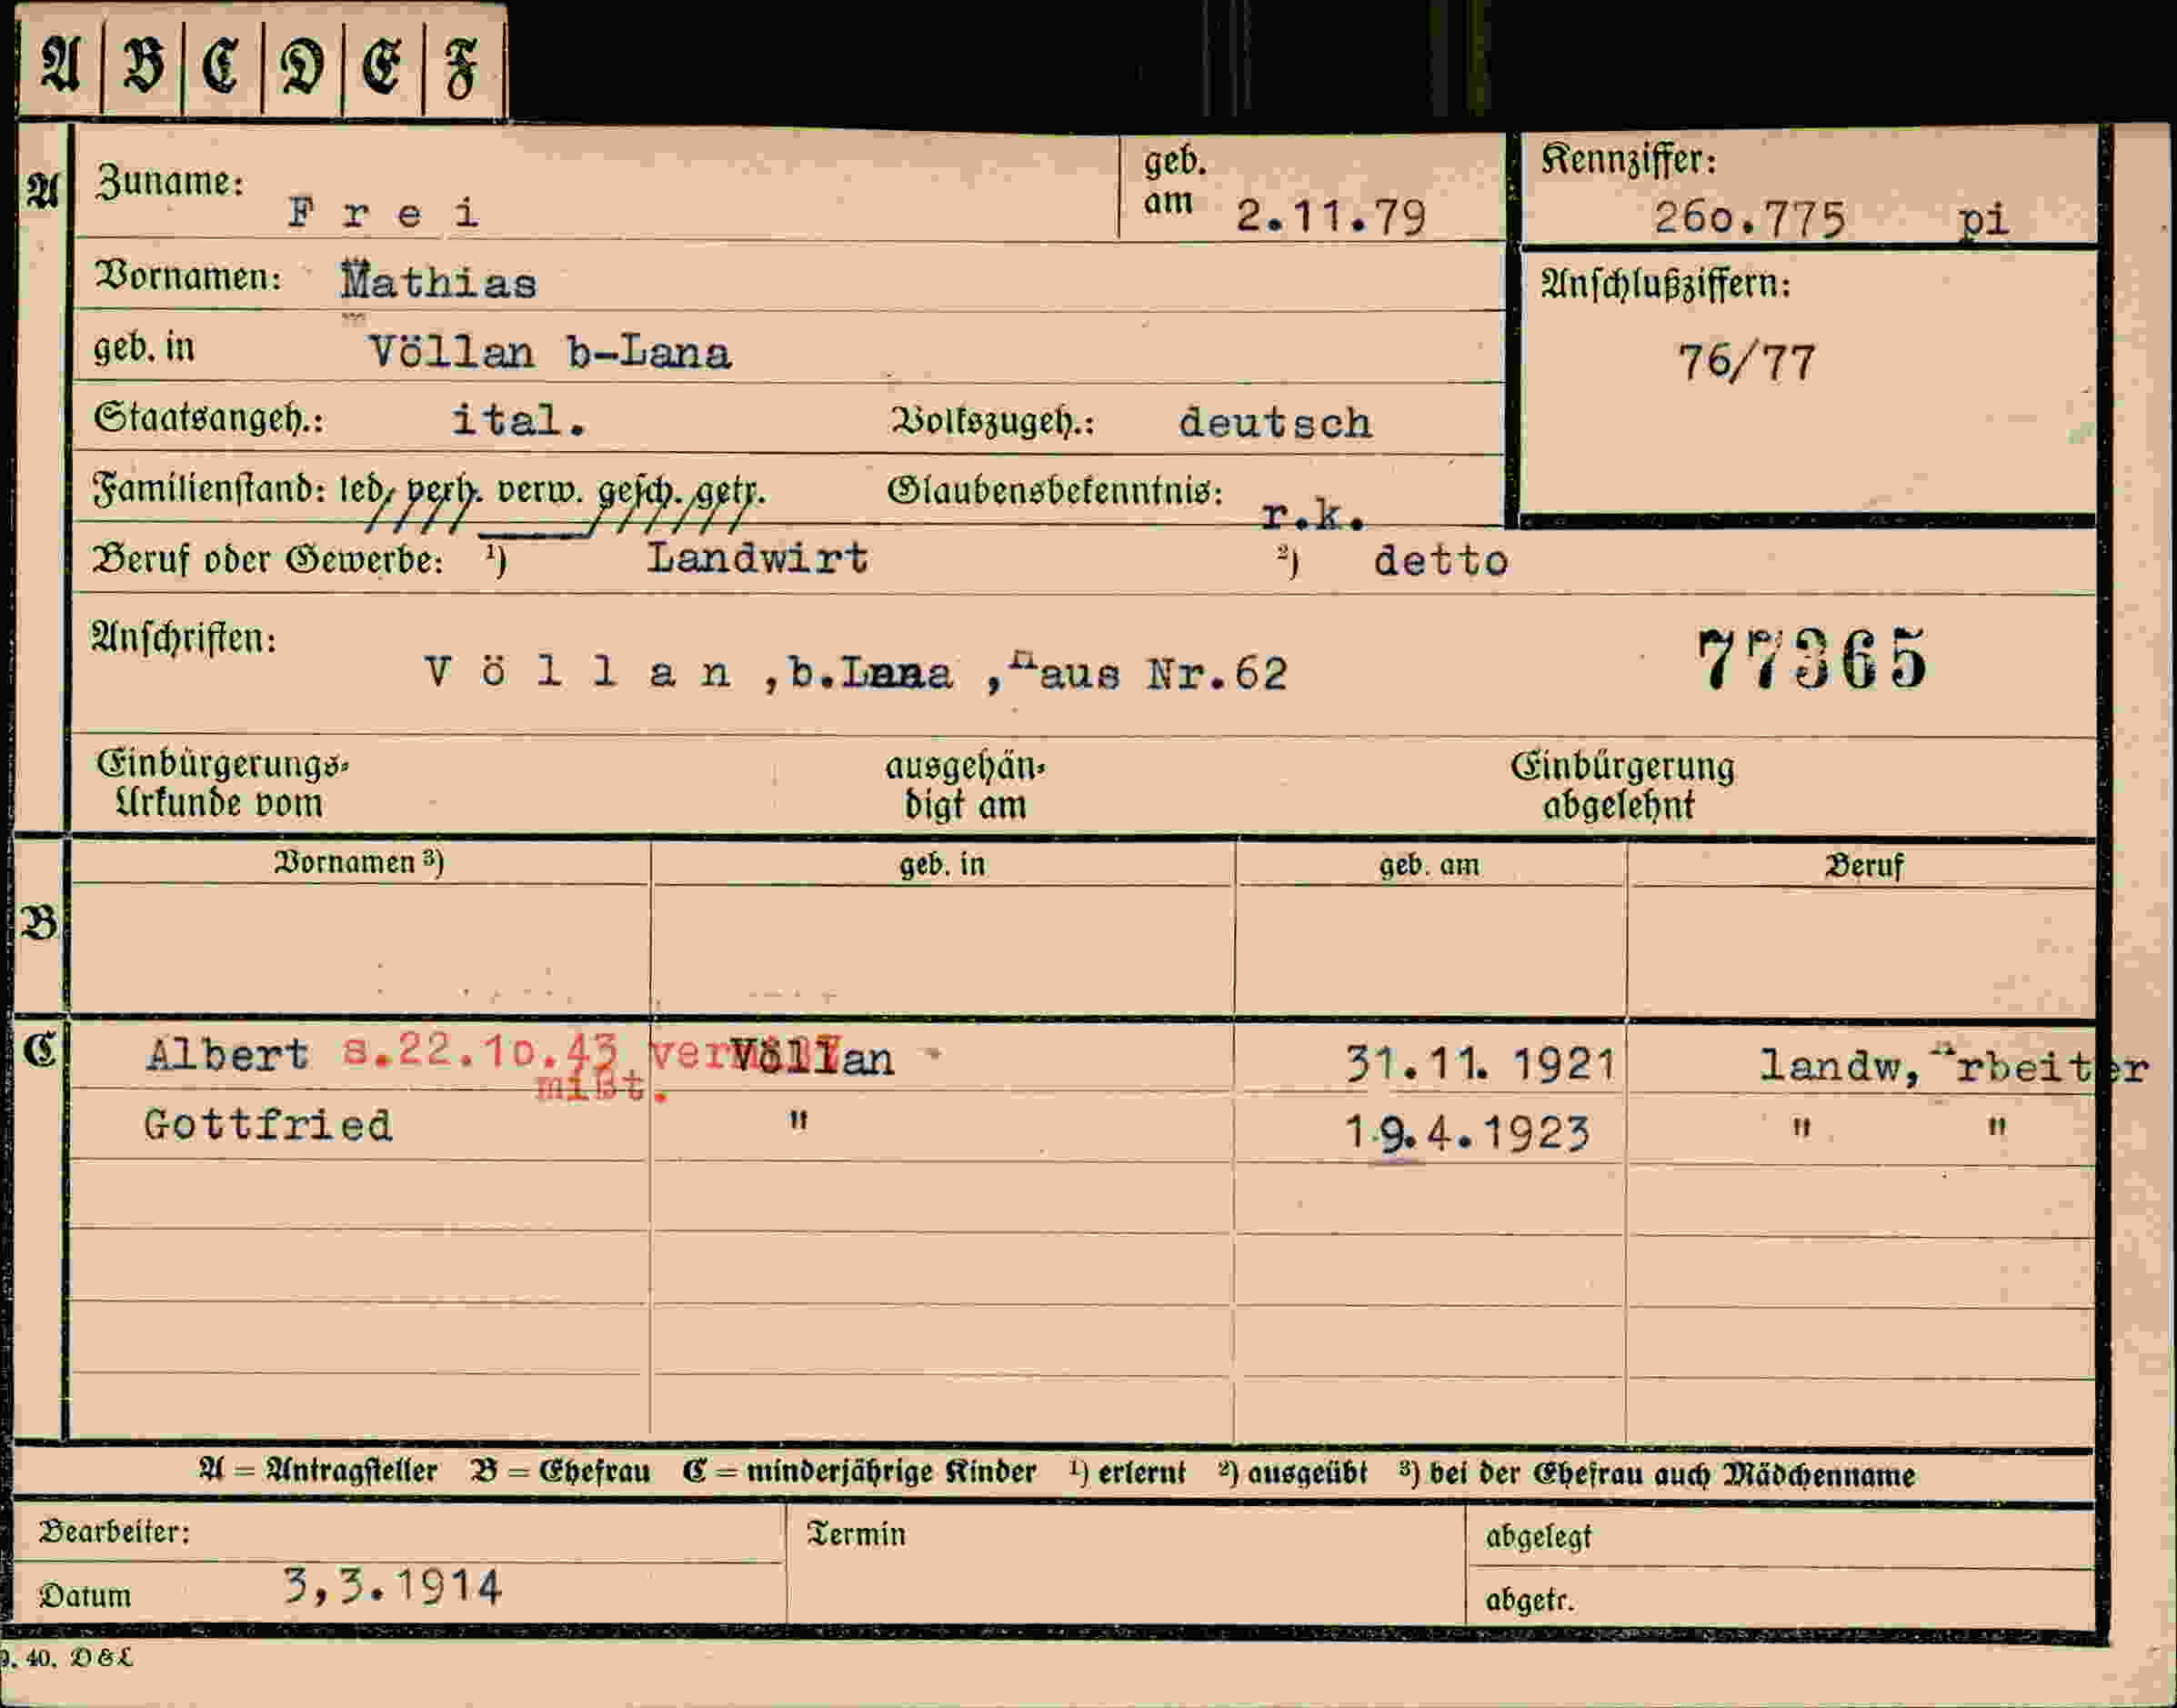 A B C D E F
A Zuname: Frei geb. am 2.11.79 Kennziffer: 26o.775 pi
Vornamen: Mathias Anschlußziffern:
geb. in Völlan b-Lana 76/77
Staatsangeh.: ital. Volkszugeh.: deutsch
Familienstand: led. verh. verw. gesch. getr. Glaubensbekenntnis: r.k.
Beruf oder Gewerbe: ¹) Landwirt ²) detto
Anschriften: Völlan ,b.Lana ,Haus Nr.62 77365
Einbürgerungs- ausgehän- Einbürgerung
Urkunde vom digt am abgelehnt
Vornamen ³) geb. in geb. am Beruf
B
C Albert s.22.1o.43 Völlan 31.11. 1921 landw, Arbeiter
mißt.
Gottfried " 19.4.1923 " "
A = Antragsteller B = Ehefrau C = minderjährige Kinder ¹) erlernt ²) ausgeübt ³) bei der Ehefrau auch Mädchenname
Bearbeiter: Termin abgelegt
Datum 3,3.1914 abgetr.
9. 40. D & L